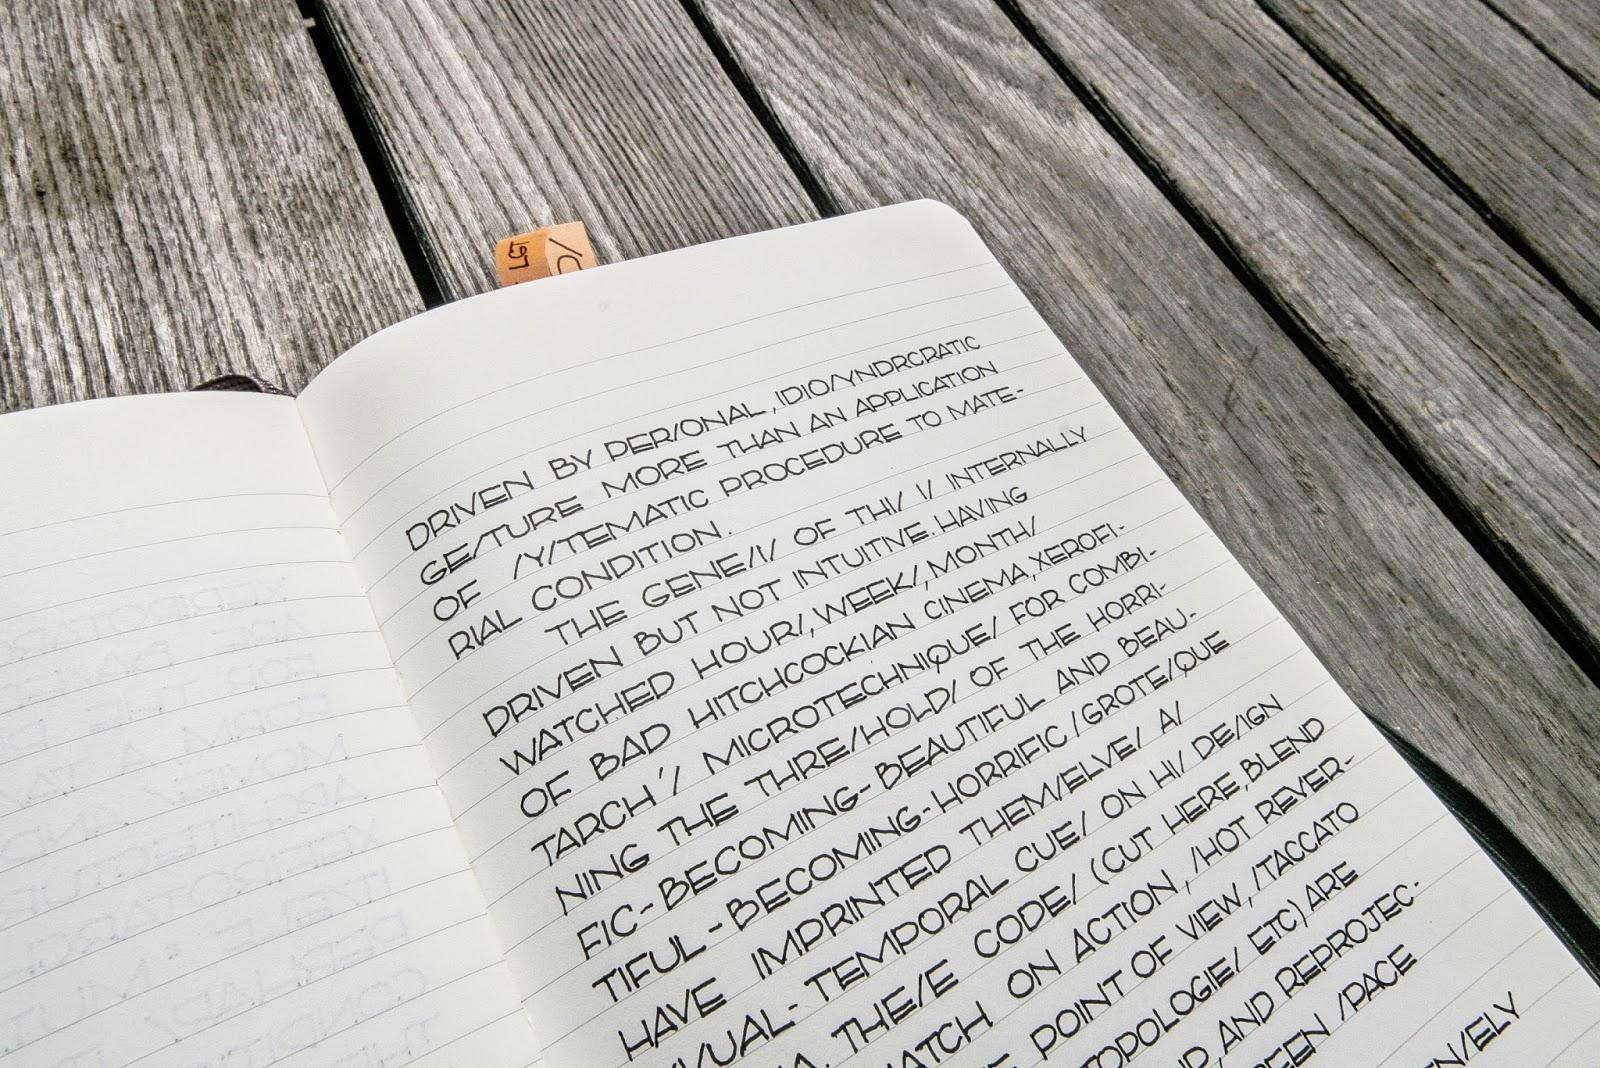 DRIVEN BY PER/ONAL, IDIO/YNDRCRATIC
GE/TURE MORE THAN AN APPLICATION
OF /Y/TEMATIC PROCEDURE TO MATE-
RIAL CONDITION.
THE GENE/I/ OF THI/ I/ INTERNALLY
DRIVEN BUT NOT INTUITIVE. HAVING
WATCHED HOUR/, WEEK/, MONTH/
OF BAD HITCHCOCKIAN CINEMA, XEROFI-
TARCH'/ MICROTECHNIQUE/ FOR COMBI-
NING THE THRE/HOLD/ OF THE HORRI-
FIC-BECOMING-BEAUTIFUL AND BEAU-
TIFUL-BECOMING-HORRIFIC/GROTE/QUE
HAVE IMPRINTED THEM/ELVE/ A/
VI/UAL-TEMPORAL CUE/ ON HI/ DE/IGN
THE/E CODE/ (CUT HERE, BLEND
MATCH ON ACTION, /HOT REVER-
POINT OF VIEW, /TACCATO
TOPOLOGIE/ ETC) ARE
AND REPROJEC-
/PACE